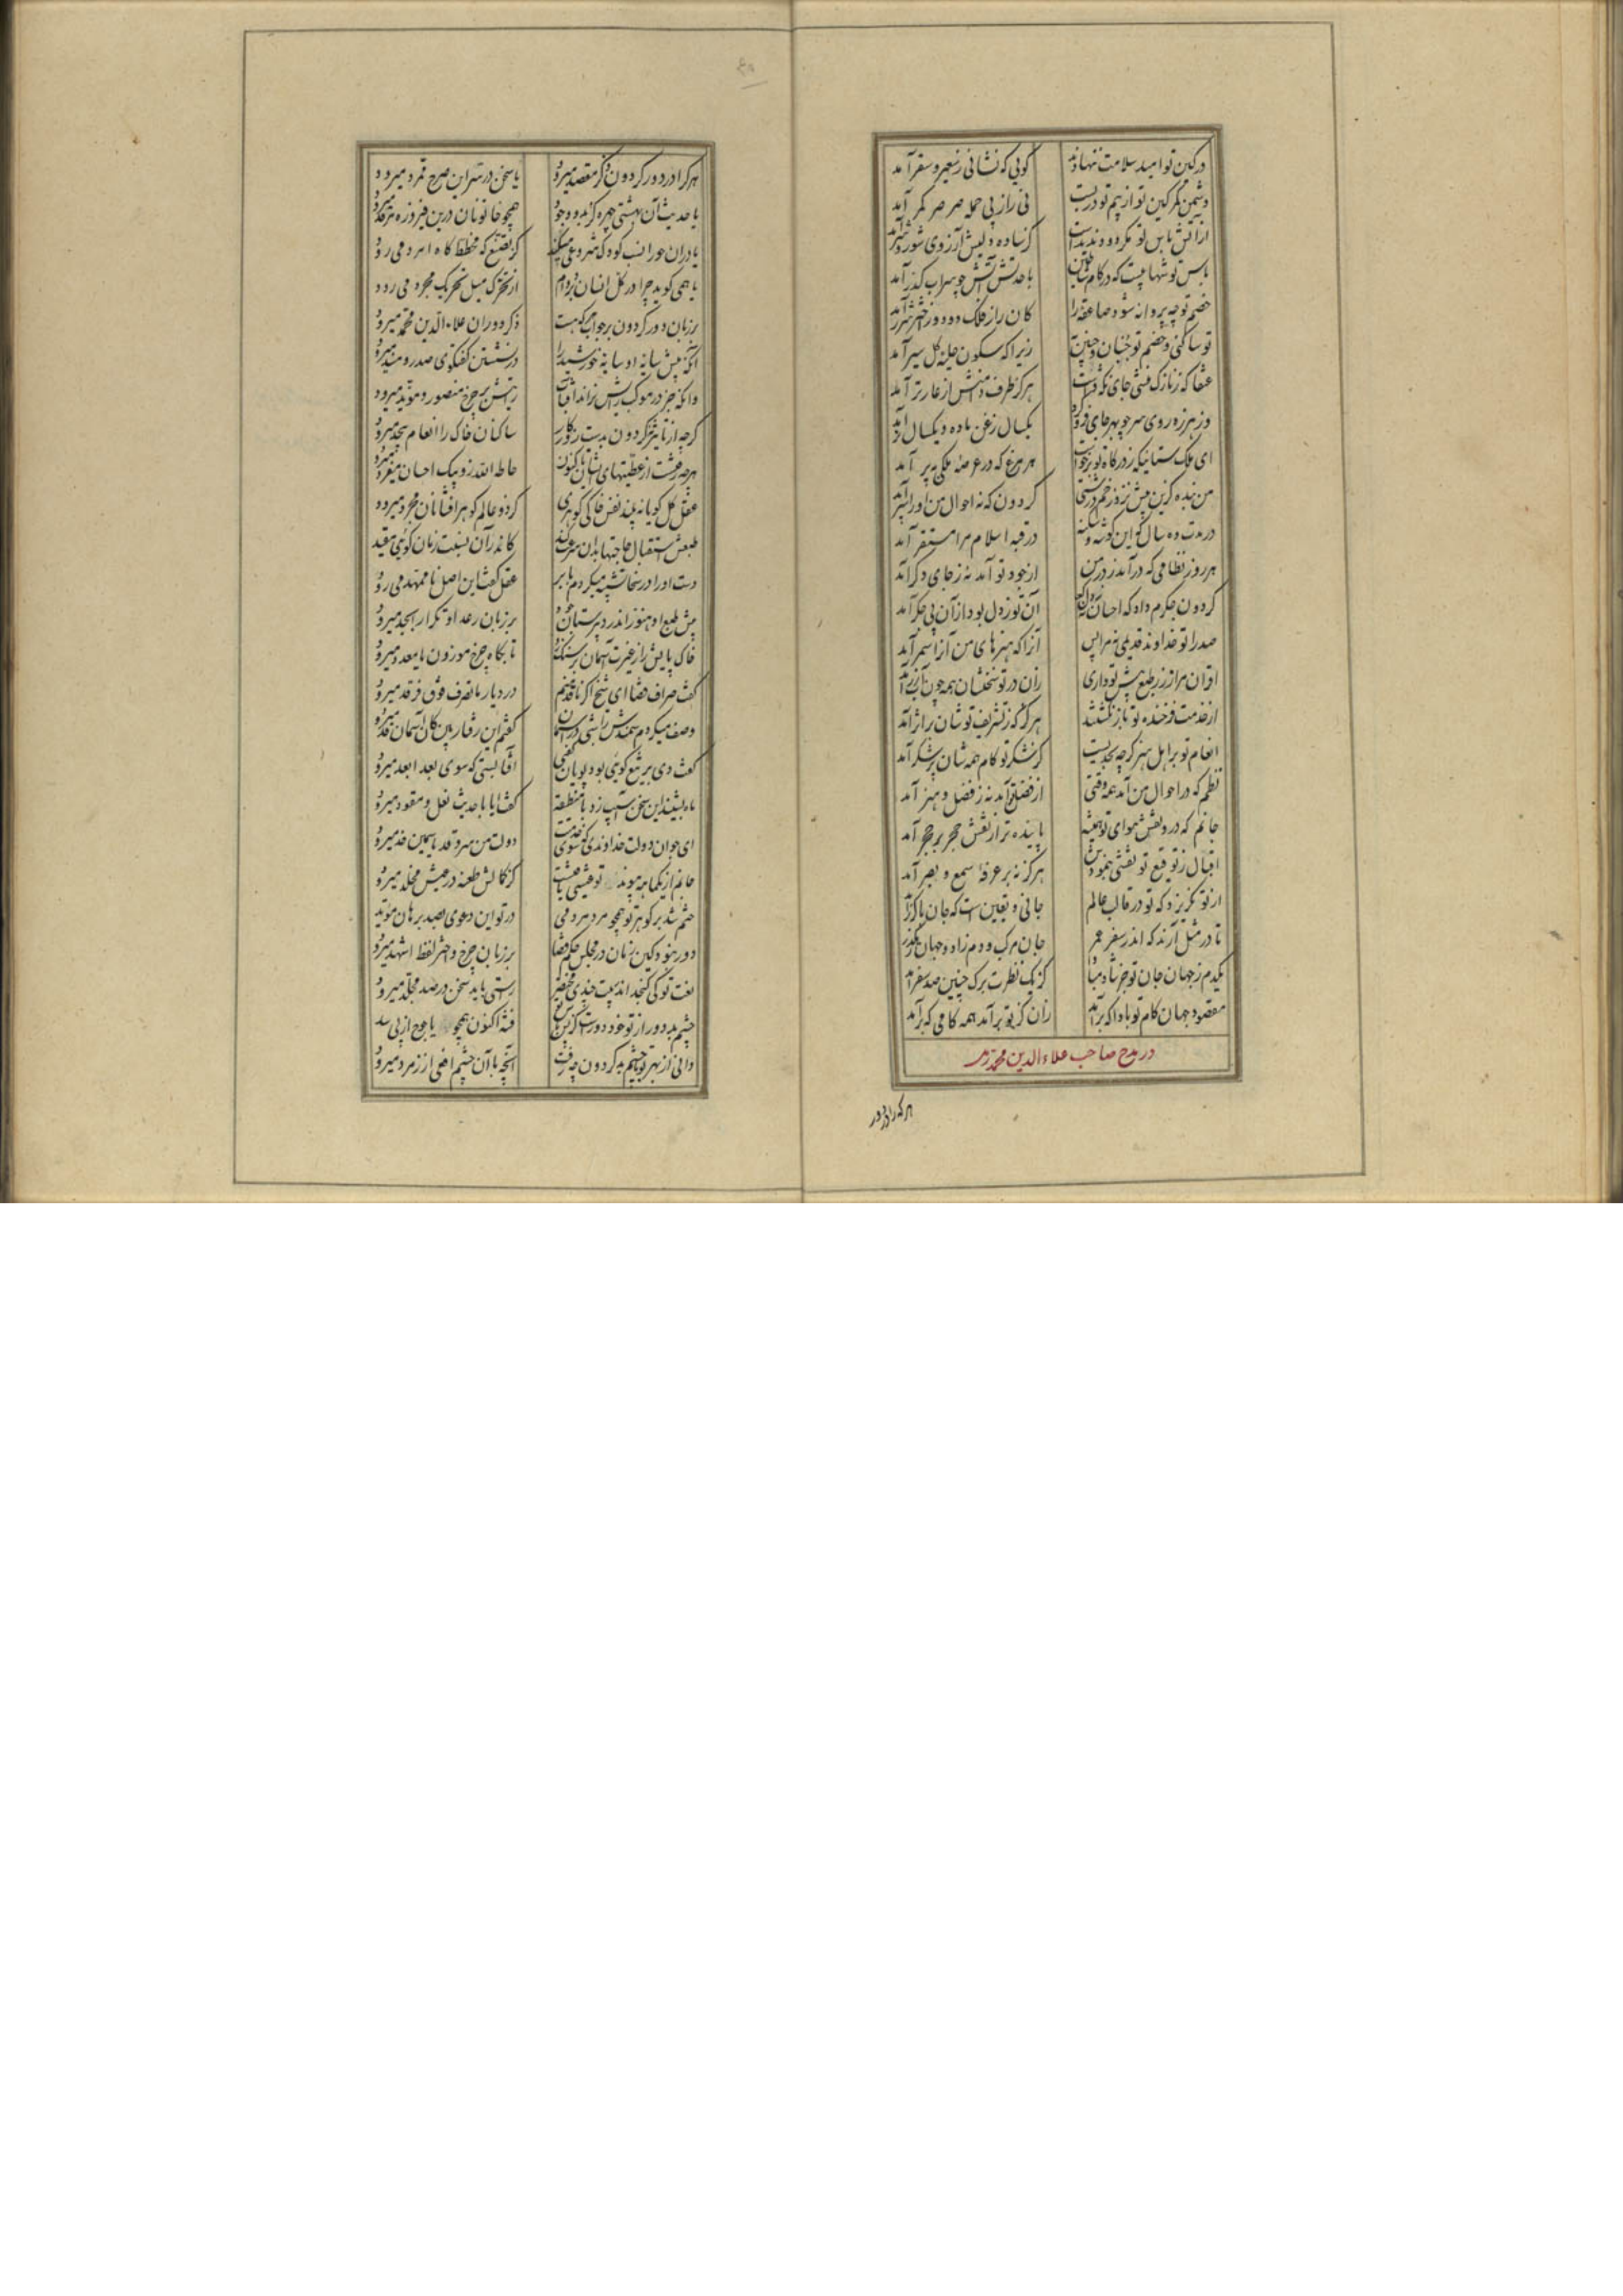 در کین تو امید سلامت ننهادند گویی که نشانی ز سعیر و سقر آمد
دشمن کمر کین تو از بیم تو دربست نی را ز پی حمله صرصر کمر آمد
از آتش باس تو مگر دود ندیدست گر ساده دلیش آرزوی شور و شر آمد
باس تو شهابیست که در کام شیاطین با حدتش آتش چو سراب کدر آمد
خصم تو چه پروانه شود صاعقه را کان راز فلک دود و ز اختر شرر آمد
تو ساکنی و خصم تو جنبان و چنین به زیرا که سکون حلیه کل سیر آمد
عنقا که ز نازک منشی جای نگه داشت هرگز طرف دامنش از عار تر آمد
وز هرزه روی سر چو بهر جای فرو کرد یکسال زغن ماده و یکسال نر آمد
ای ملک ستانیکه ز درگاه تو برخاست هر مرغ که در عرصه ملکی به پر آمد
من بنده کزین پیش نزد زخم درشتی گردون که نه احوال من او را سپر آمد
در مدت ده سال که این گوشه و سکنه در قبه اسلام مرا مستقر آمد
هر روز نظامی که درآمد ز در من از جود تو آمد نه ز جای دگر آمد
گردون جگرم داد که احسان نه ز دل کرد آن تو ز دل بود از آن بی جگر آمد
صدرا تو خداوند قدیمی نه مرا بس آنرا که هنرهای من آنرا سمر آمد
اقران مرا زر ز طمع پیش تو داری زان در تو سخنشان همه چون آب زر آمد
از خدمت فرخنده تو باز نگشتند هر گز که ز تشریف تو شان رازاآمد
انعام تو بر اهل هنر گرچه بحدیست کز شکر تو کام همه شان پر شکر آمد
نظمم که در احوال من آمد همه وقتی از فضل تو آمد نه ز فضل و هنر آمد
جانم که در و نقش هوای تو همیشه پاینده تر از نقش حجر بر حجر آمد
اقبال ز توقیع تو نقشی بنمودش هرگز نه بر عرفه سمع و بصر آمد
از تو نگریزد که تو در قالب عالم جانی و یقین است که جان ناگزر آمد
تا در مثل آرند که اندر سفر عمر جان مرکب و دم زاد و جهان رهگذر آمد
یکدم ز جهان جان تو جز شاد مبادا کز یک نظرت برگ چنین صد سفر آمد
مقصود جهان کام تو بادا که برآید زان کز تو برآمد همه کامی که برآمد
در مدح صاحب علاء الدین محمد
هر که را در دور
هر کرا در دور گردون ذکر مقصد میرود یا سخن در سر این صرح ممرد میرود
یا حدیث آن بهشتی چهره کز بدو وجود همچو خاتونان درین فیروزه مرقد میرود
یا در آن حورا نسب کودک شروعی میکند کز تصنع که مخطط گاه امرد می رود
یا همی گوید چرا در کل انسان بر دوام از تحرک میل تحریک مجرد می رود
بر زبان دور گردون در جواب هر که هست ذکر دوران علاء الدین محمد میرود
آنکه پیش سایه او سایه خورشید را در نشستن گفتگوی صدر و مسند میرود
وانکه جز در موکب رایش نراند آفتاب رایتش بر چرخ منصور و مؤید میرود
گرچه از تاثیر گردون بدست روزگار ساکنان خاک را انعام بیحد میرود
هر چه رفت از عطیتهای ایشان تاکنون حاطه الله ز و بیک احسان مفرد میرود
عقل کل گو یا نه بیند نفس خاکی گوهری گرد و عالم گوهر افشانان مجرد میرود
طبعش استقبال حاجتها بدان سرعت کند کاندر آن نسبت زمان گوئی مقید میرود
دست او را در سخا تشبیه میکردم بابر عقل گفت این اصل نا ممهد می رود
پیش طبع او هنوز اندر دبیرستان جود بر زبان رعد او تکرار ابجد میرود
خاک پایش را ز غیرت آسمان بر سنگ زد تا بگاه چرخ موزون یا معدد میرود
گفت صراف قضا ای شیخ اگر ناقد منم در دیار ما تصرف فوق فرقد میرود
وصف میکردم سمندش را شبی در آسمان گفتم این رفتار بین کان آسمان قد میرود
گفت دی بر تیغ کوهی بود پویان گفتمی آفتابستی که سوی بعد ابعد میرود
ماه بشنید این سخن آسیب زد بامنطقه گفت ایا با حدیث نعل و مقود میرود
ای جوان دولت خداوندی که سوی خدمتت دولت من سرو قد یاسمین خد میرود
جانم از یکماهه پیوند تو عیشی یافتست کز کمالش طعنه در عیش مخلد میرود
ختم شد بر گوهر تو همچو مردی مردمی در تو این دعوی بصد برهان مؤید میرود
دور نبود کین زمان در مجلس حکم قضا بر زبان چرخ و اختر لفظ اشهد میرود
نعت تو کی گنجد اندر بیت چندی مختصر راستی باید سخن در صد مجلد میرود
چشم بد دور از تو خود دورست کز بس فتنه اکنون همچو یاجوج از پی سد میرود
دانی از بهر تو با چشم بد گردون چه رفت آنچه با آن چشم افعی از زمرد میرود